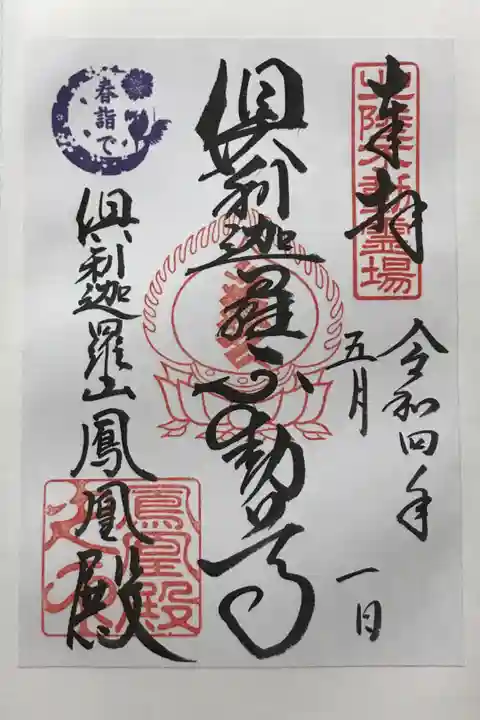 奉拝
北陸不動霊場
令和四年
五月
一日
倶利迦羅不動尊
春詣で
倶利迦羅山鳳凰殿
鳳皇殿